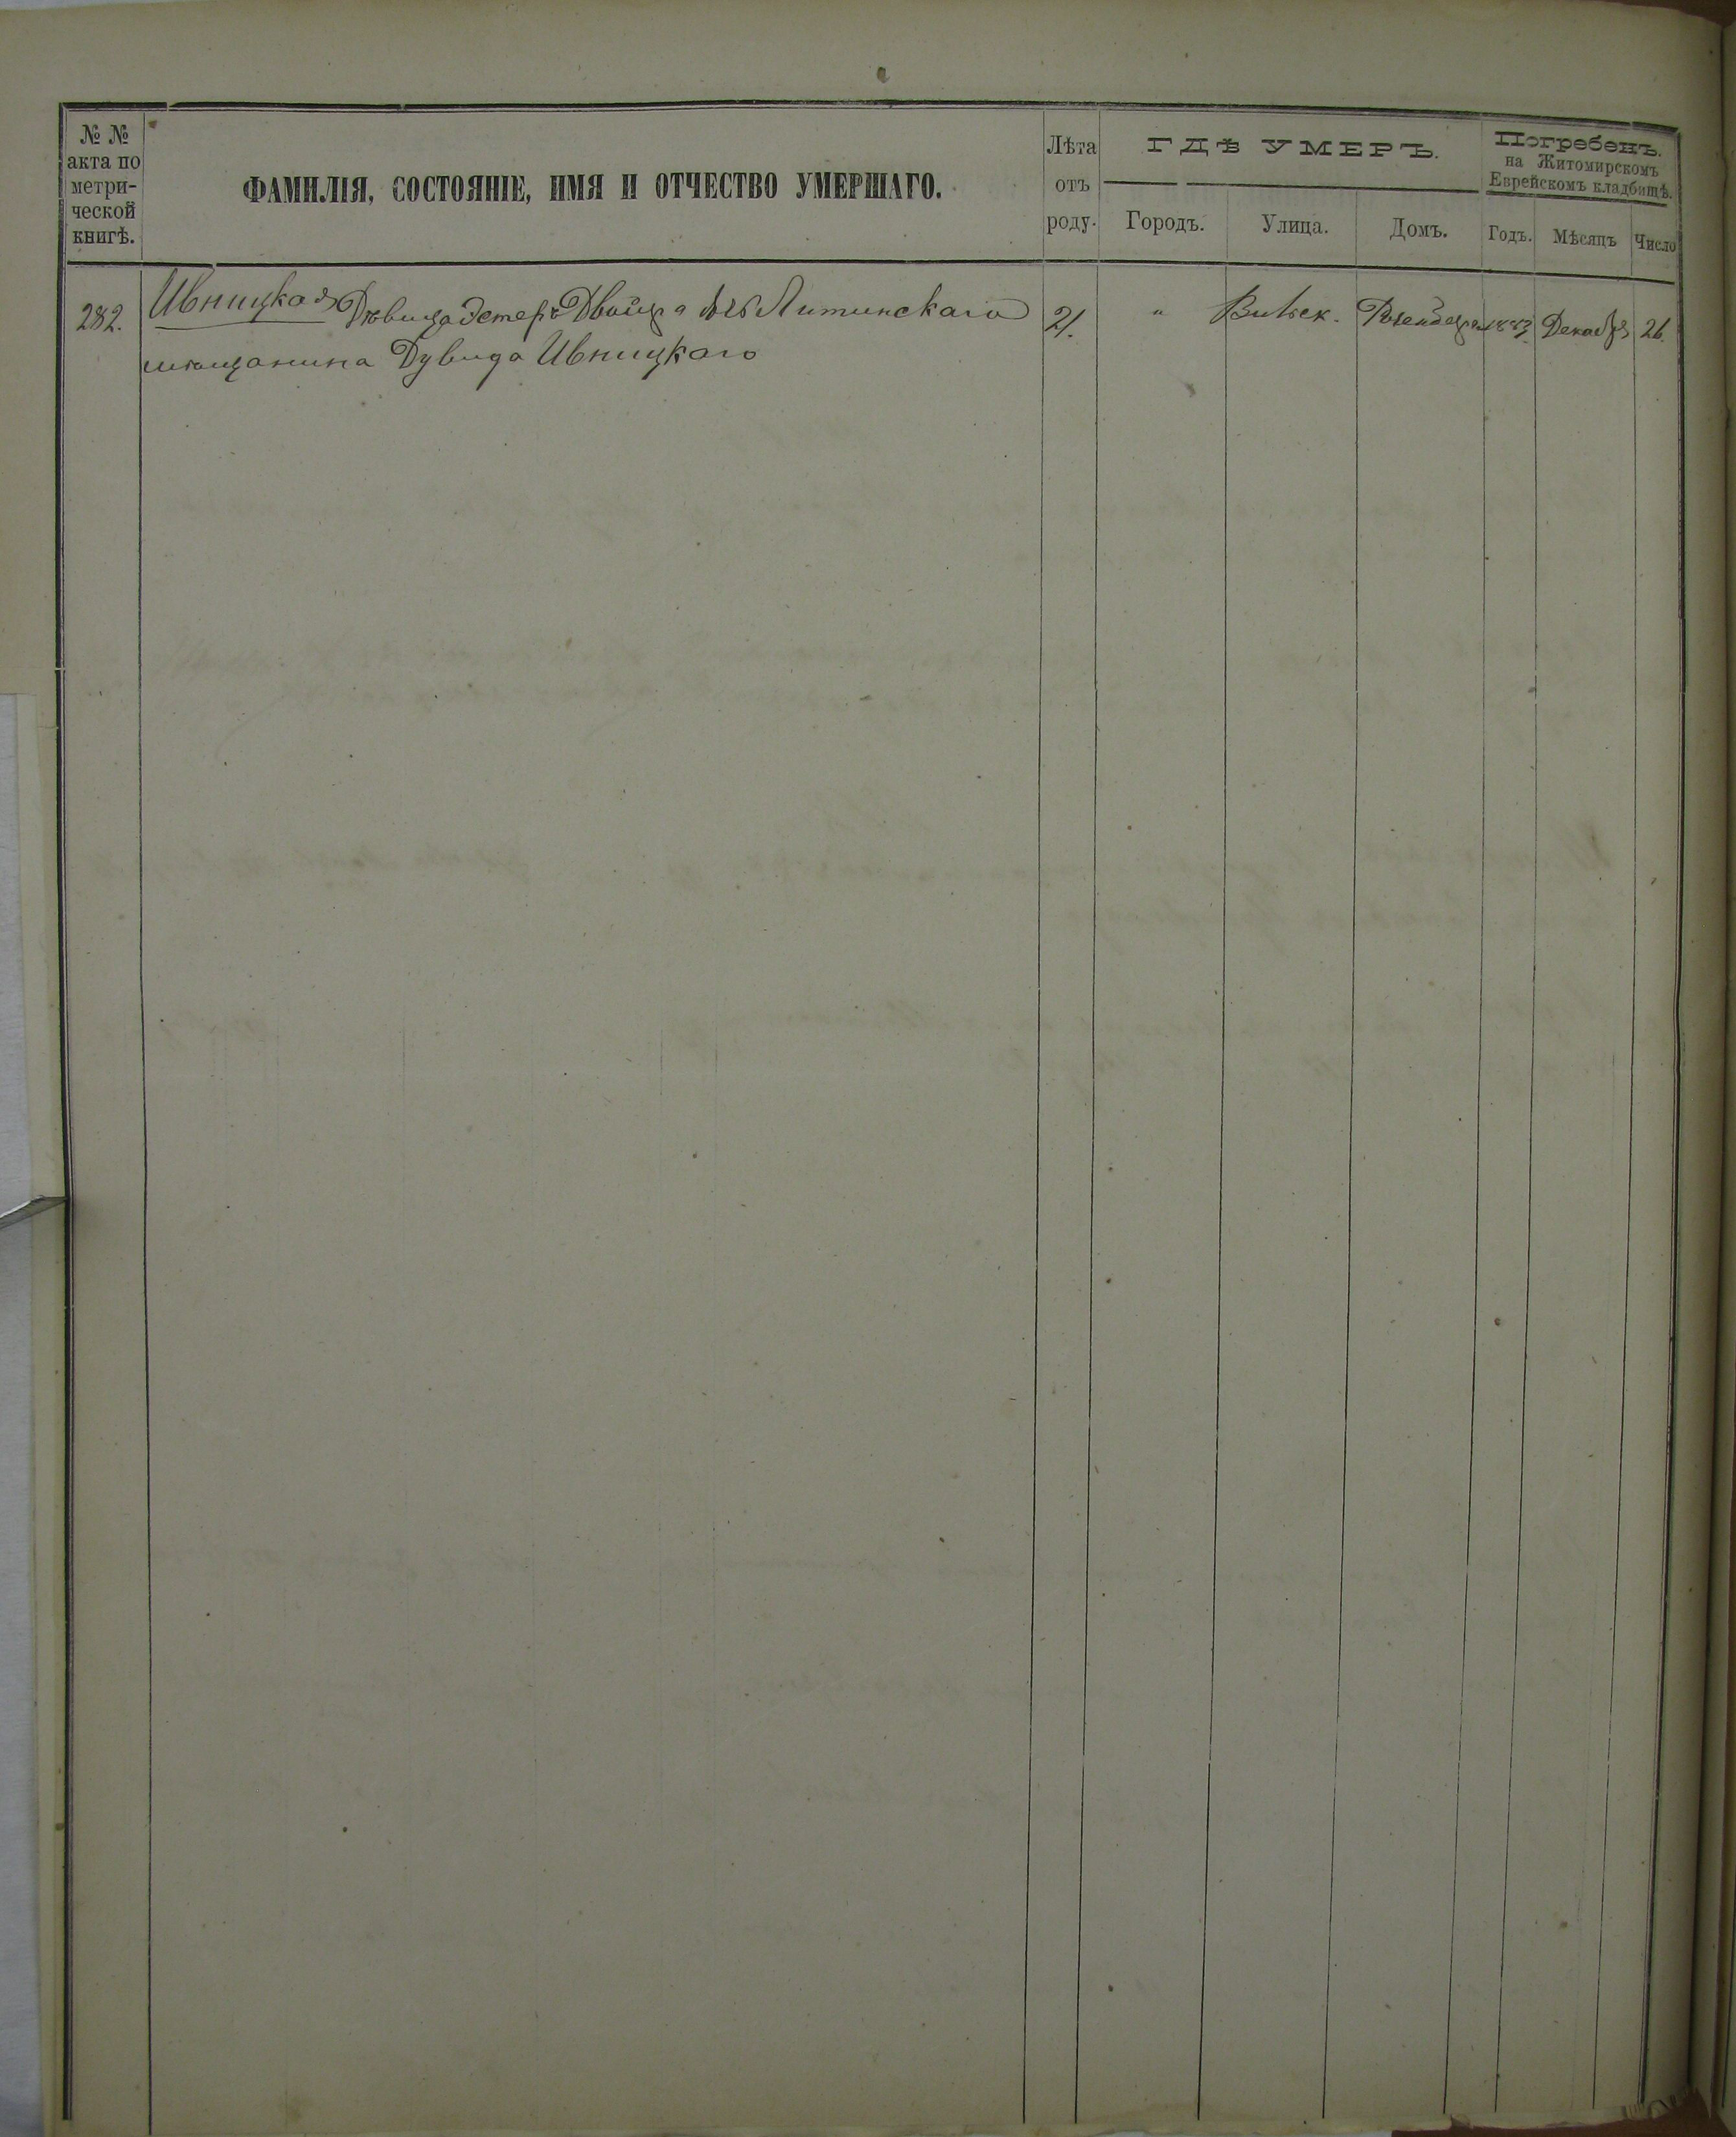 № №
акта по
метри-
ческой
книгѣ.
ФАМИЛІЯ, СОСТОЯНІЕ, ИМЯ И ОТЧЕСТВО УМЕРШАГО.
Лѣта
отъ
роду.
ГДѢ УМЕРЪ.
Городъ.
Улица.
Домъ.
Погребенъ.
на Житомирскомъ
Еврейскомъ кладбищѣ.
Годъ.
Мѣсяцъ
Число
282. Ивницкая Дѣвица Эстеръ Двойра Литинскаго 21. " Вильск. Декабря 26.
мѣщанина Дувида Ивницкаго